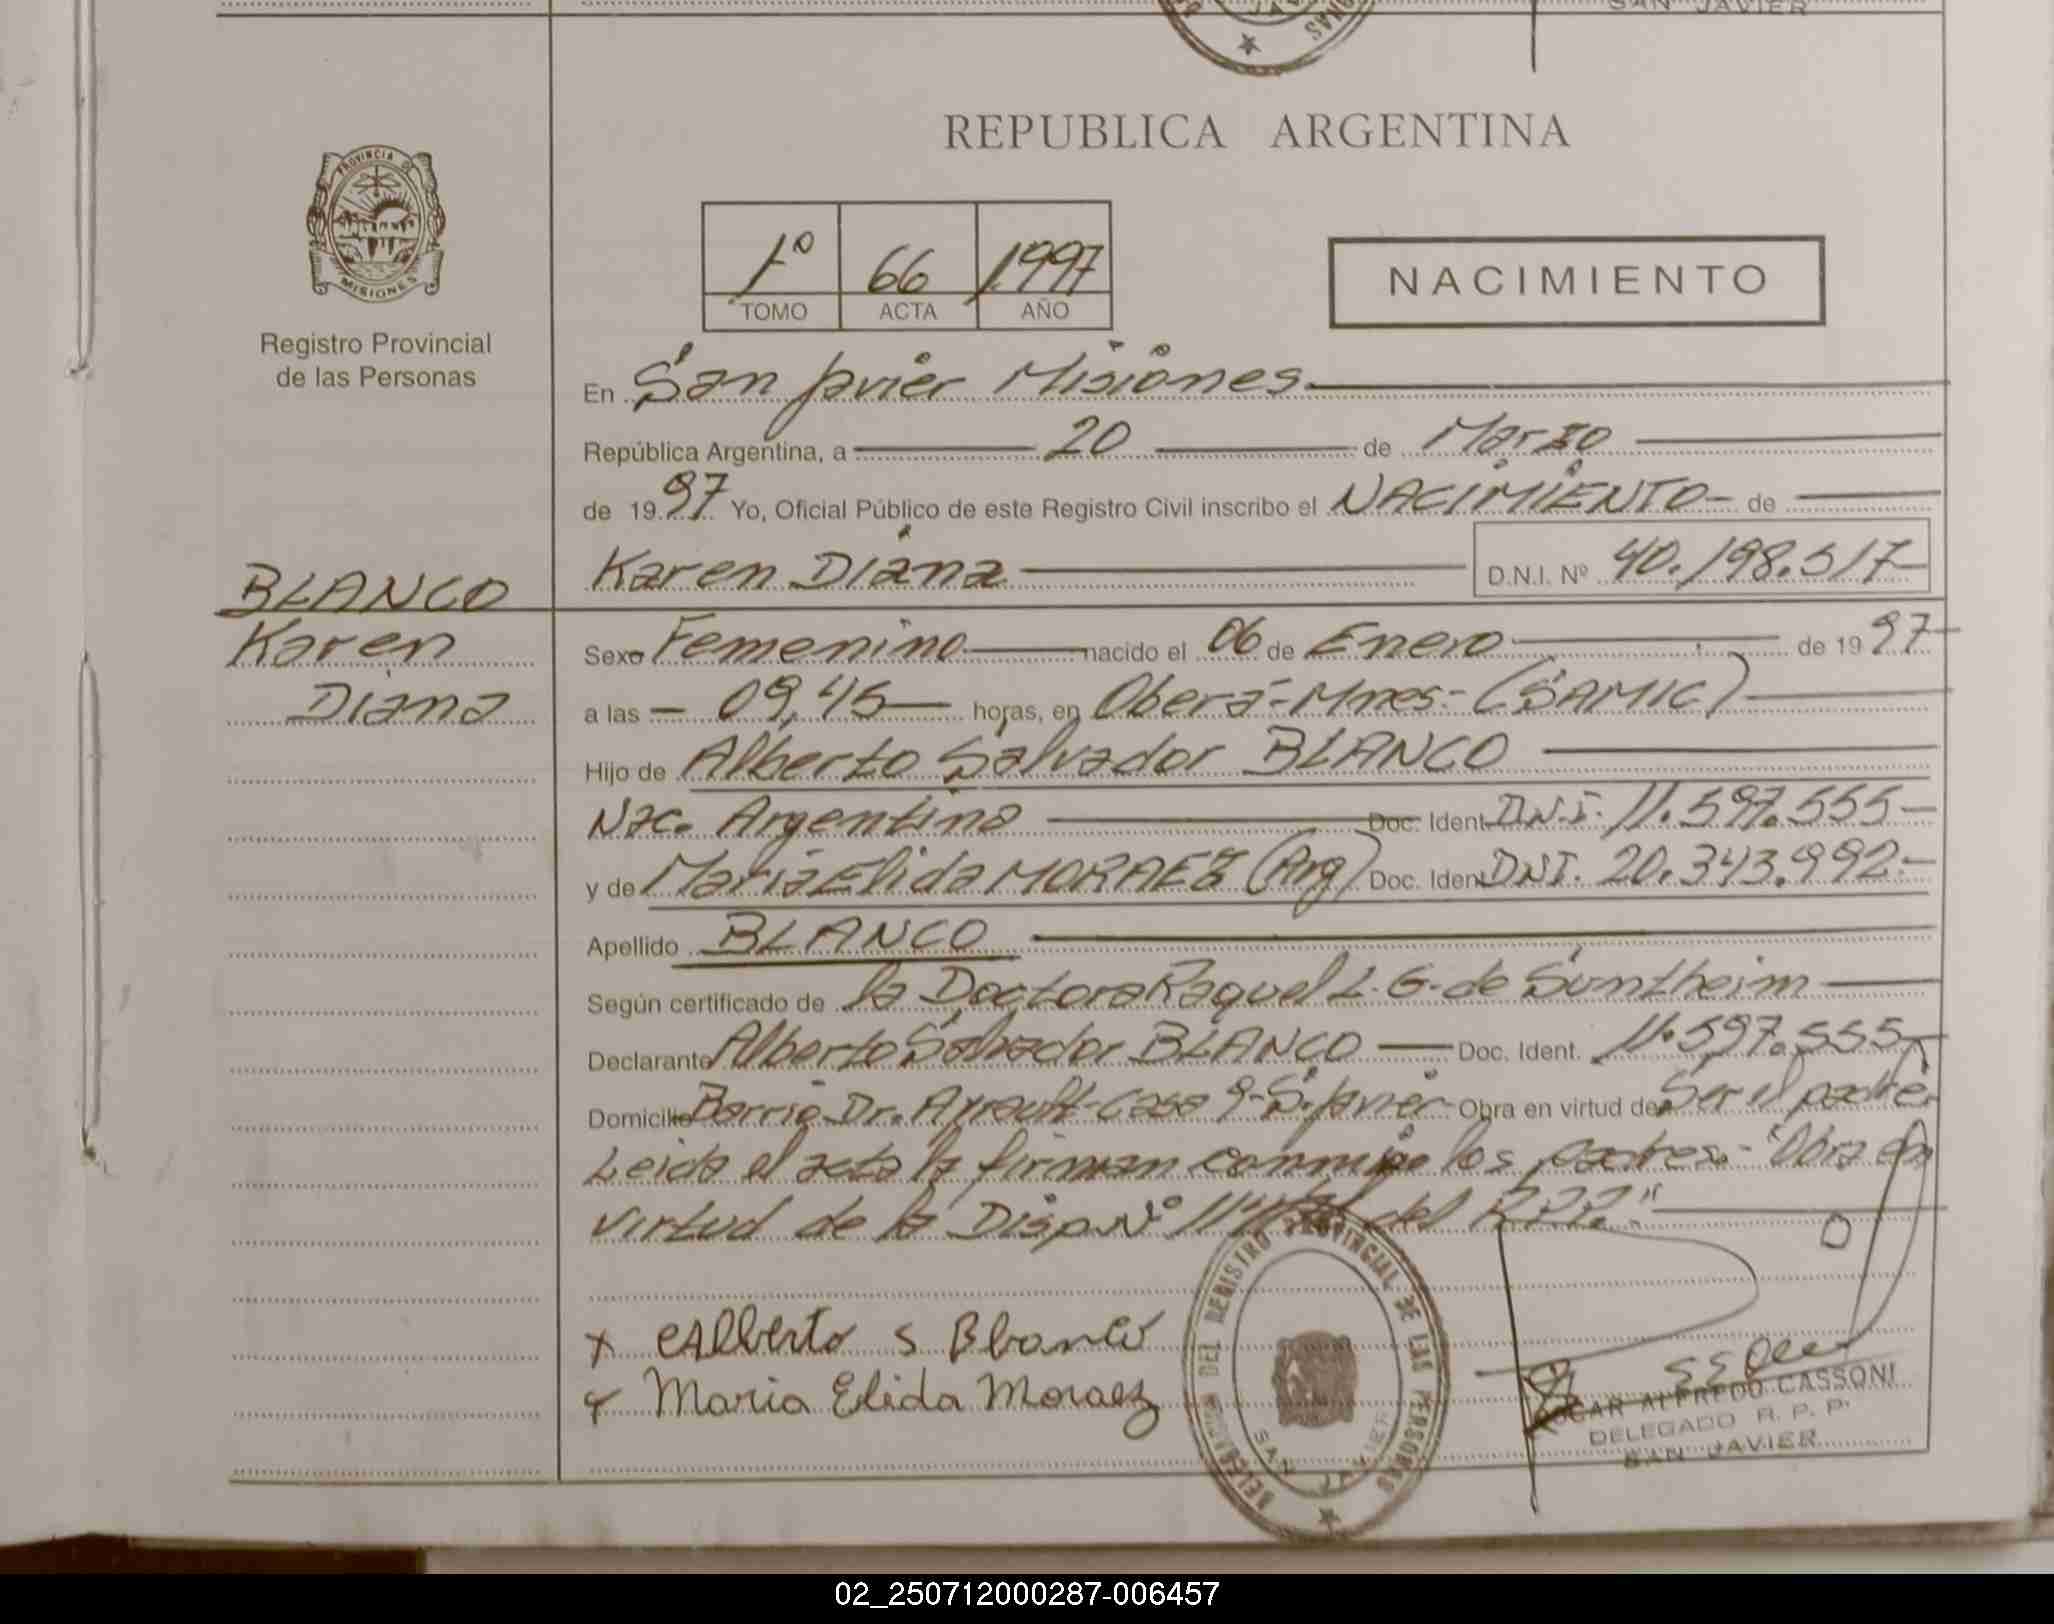 SAN JAVIER
REPUBLICA ARGENTINA
PROVINCIA DE
MISIONES
1º 66 1997
TOMO ACTA AÑO
NACIMIENTO
Registro Provincial
de las Personas
En San Javier Misiones
República Argentina, a 20 de Marzo
de 1997 Yo, Oficial Público de este Registro Civil inscribo el NACIMIENTO de
Karen Diana D.N.I. Nº 40.198.517
BLANCO
Karen
Diana
Sexo Femenino nacido el 06 de Enero de 1997
a las 09,45 horas, en Oberá-Mnes-(SAMIC)
Hijo de Alberto Salvador BLANCO
Nac. Argentino Doc. Ident D.N.I. 11.597.555
y de Maria Elida MORAEZ (Arg) Doc. Ident DNI. 20.343.992.-
Apellido BLANCO
Según certificado de la Doctora Raquel L. G. de Suntheim
Declarante Alberto Salvador BLANCO Doc. Ident. 11.597.555
Domicilio Barrio Dr. Casa 9-S. Javier Obra en virtud de Ser el padre.
Leida el acta la firman conmigo los padres.- "Obra en
virtud de la Disp. Nº del R.P.P."
x Alberto S Blanco
x Maria Elida Moraez
DELEGACION DEL REGISTRO PROVINCIAL DE LAS PERSONAS
SAN JAVIER
OSCAR ALFREDO CASSONI
DELEGADO R. P. P.
SAN JAVIER
02_250712000287-006457